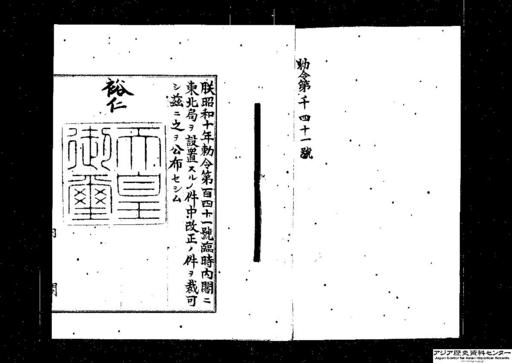 勅令第千四十一號
朕昭和十年勅令第百四十一號臨時內閣ニ
東北局ヲ設置スルノ件中改正ノ件ヲ裁可
シ茲ニ之ヲ公布セシム
裕仁
天皇
御璽
アジア歴史資料センター
Japan Center for Asian Historical Records